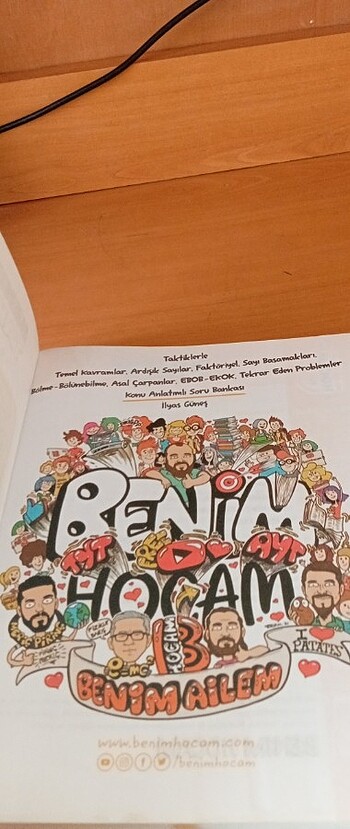 Taktiklerle
Temel Kavramlar, Ardışık Sayılar, Faktöriyel, Sayı Basamakları,
Bölme-Bölünebilme, Asal Çarpanlar, EBOB-EKOK, Tekrar Eden Problemler
Konu Anlatımlı Soru Bankası
İlyas Güneş
BENİM
TYT
AYT
HOCAM
HOCAM
e=mc²
I
PATATES
BENİM AİLEM
www.benimhocam.com
/benimhocam